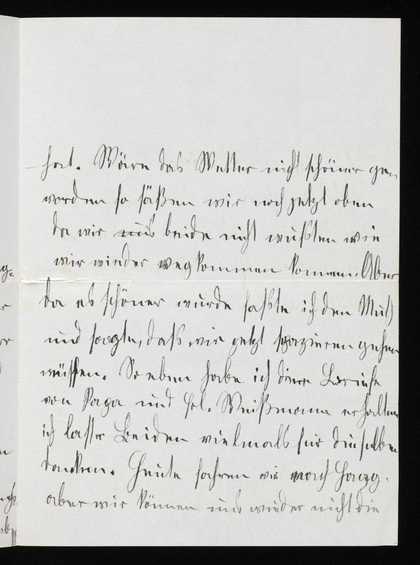 hat. Wäre das Wetter nicht schöner ge-
worden so säßen wir noch jetzt oben
da wir uns beide nicht wußten wie
wir wieder wegkommen können. Aber
da es schöner wurde faßte ich den Muth
und sagte, daß wir jetzt spazieren gehen
müssen. So eben habe ich die Briefe
von Papa und Frl. Weißmann erhalten
ich lasse Beiden vielmals für dieselben
danken. Heute fahren wir nach
aber wir können uns wieder nicht die